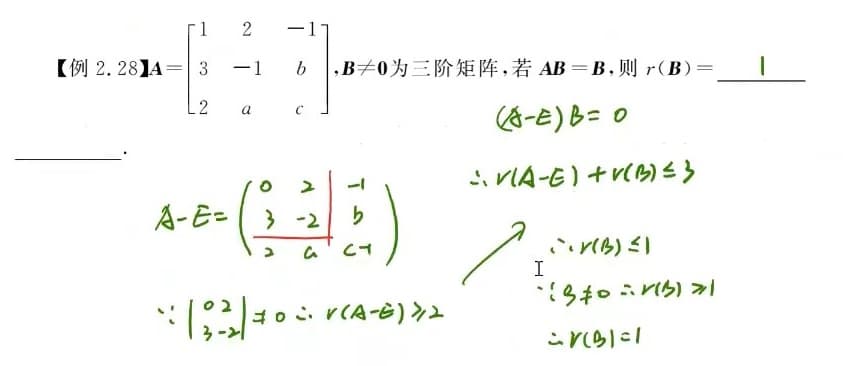 【例 2.28】A = [1 2 −1
3 −1 b
2 a c], B≠0为三阶矩阵,若 AB=B,则 r(B)= 1
.
(A-E)B=0
∴ r(A-E)+r(B)≤3
A-E= (0 2 -1
3 -2 b
2 a c-1)
∴ r(B)≤1
∵ |0 2
3 -2| ≠0 ∴ r(A-E)≥2
∵ B≠0 ∴ r(B)≥1
∴ r(B)=1